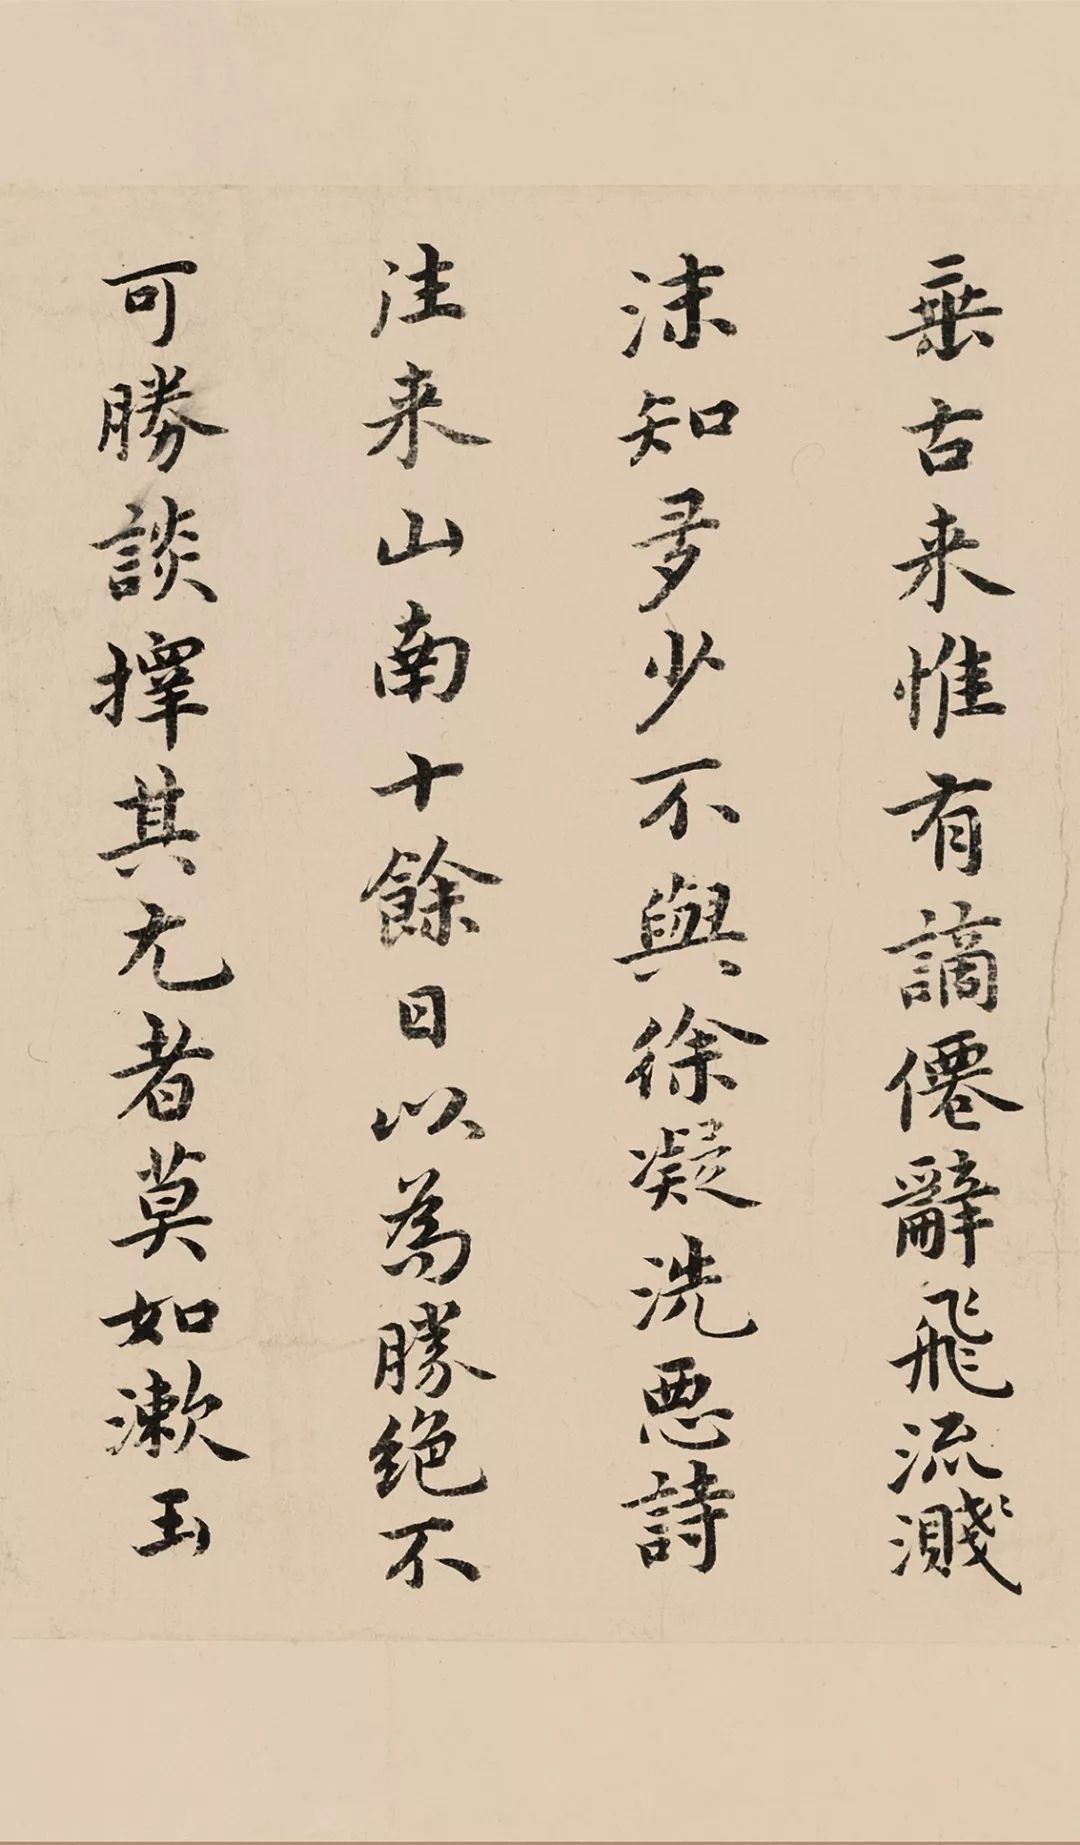 垂古来惟有謫僊辭飛流濺
沫知多少不與徐凝洗惡詩
往来山南十餘日以為勝絕不
可勝談擇其尤者莫如漱玉